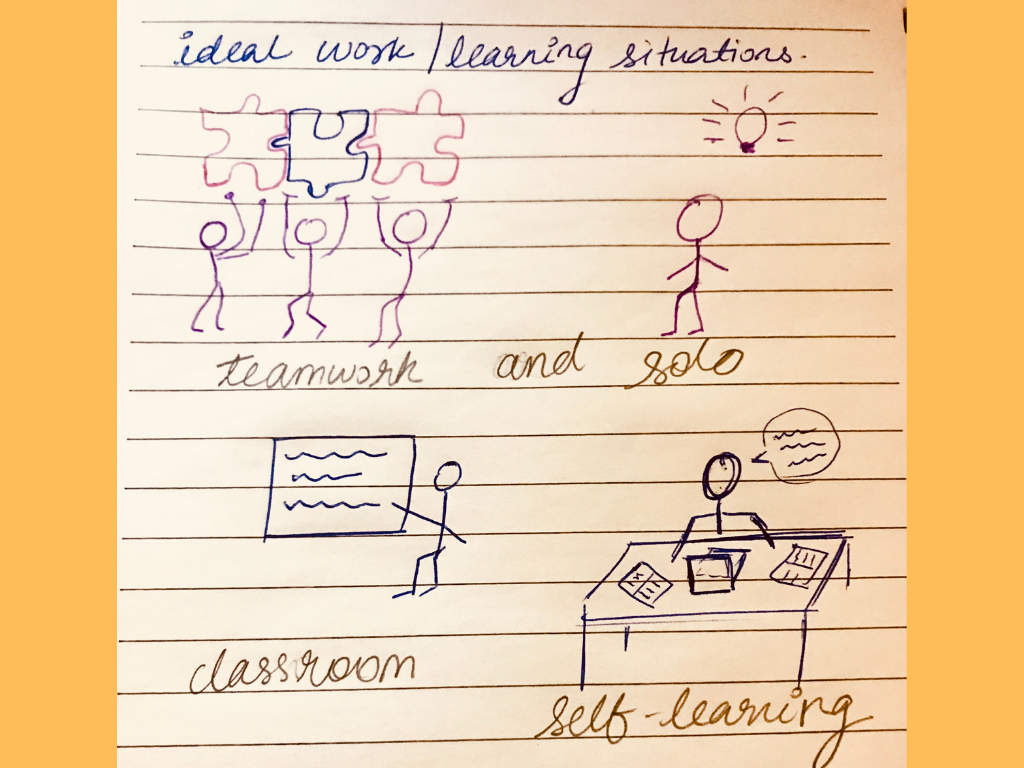 ideal work / learning situations.
teamwork and solo
classroom
self-learning